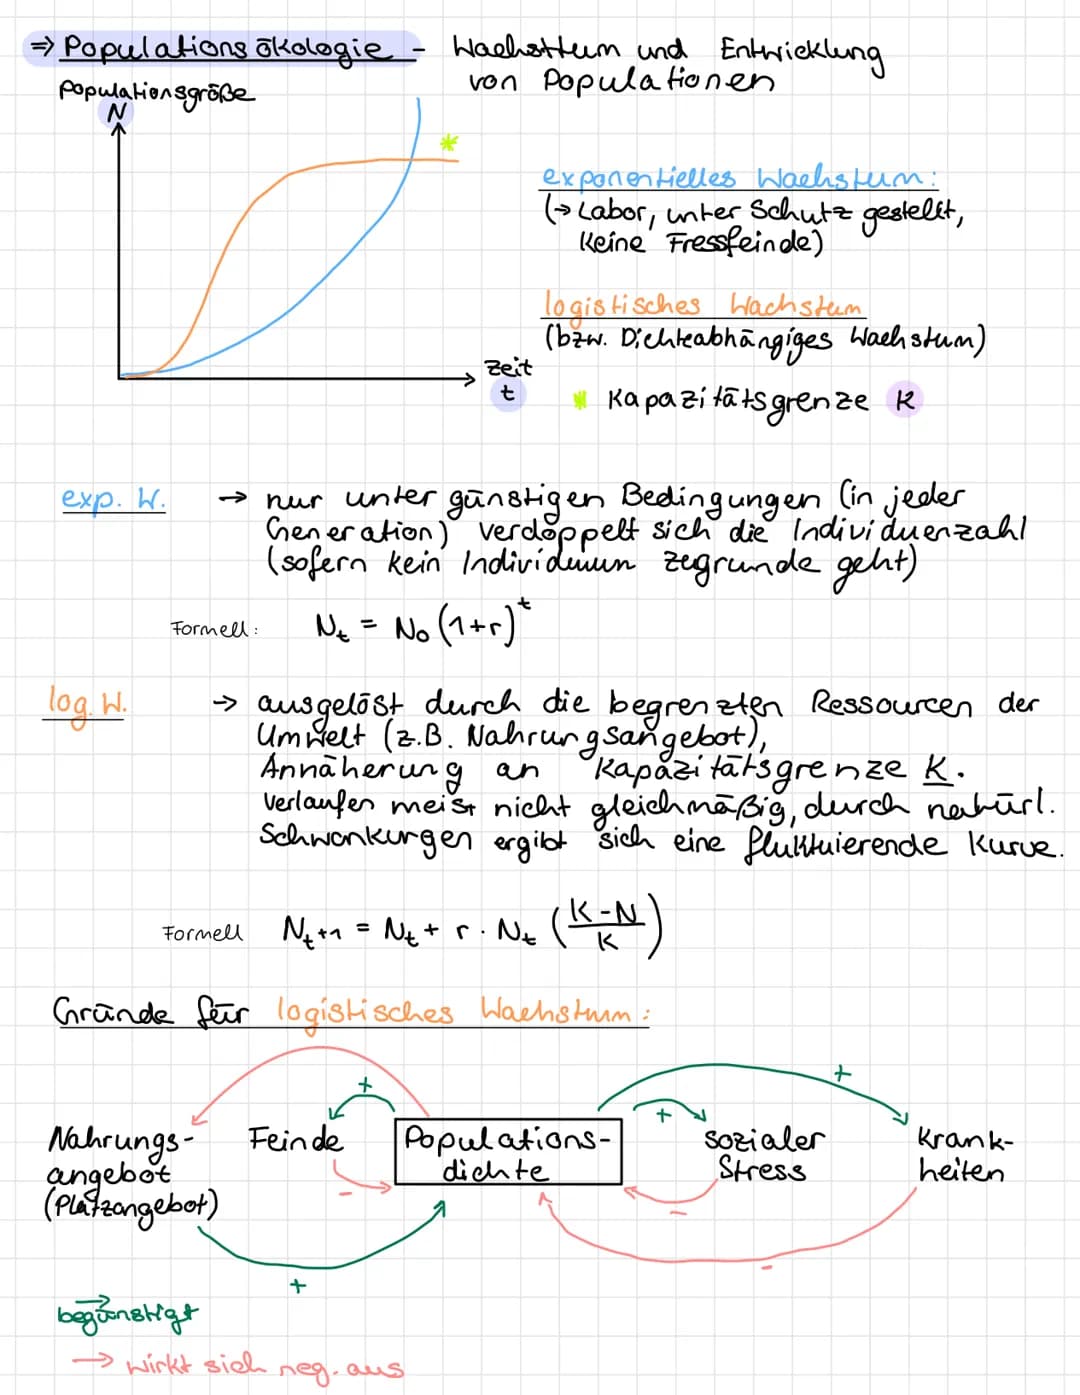 ⇒ Populationsökologie - Wachstum und Entwicklung
von Populationen
Populationsgröße
N
*
exponentielles Wachstum:
(→ Labor, unter Schutz gestellt,
keine Fressfeinde)
logistisches Wachstum
(bzw. Dichteabhängiges Wachstum)
Zeit
t
* Kapazitätsgrenze K
exp. W. → nur unter günstigen Bedingungen (in jeder
Generation) verdoppelt sich die Individuenzahl
(sofern kein Individuum zugrunde geht)
Formell: Nt = N0 (1+r)^t
log. W. → ausgelöst durch die begrenzten Ressourcen der
Umwelt (z.B. Nahrungsangebot),
Annäherung an Kapazitätsgrenze K.
Verlaufen meist nicht gleichmäßig, durch natürl.
Schwankungen ergibt sich eine fluktuierende Kurve.
Formell Nt+1 = Nt + r · Nt (K-N/K)
Gründe für logistisches Wachstum:
+ + +
Nahrungs- Feinde Populations- sozialer Krank-
angebot dichte Stress heiten
(Platzangebot)
- - -
+
begünstigt
→ wirkt sich neg. aus